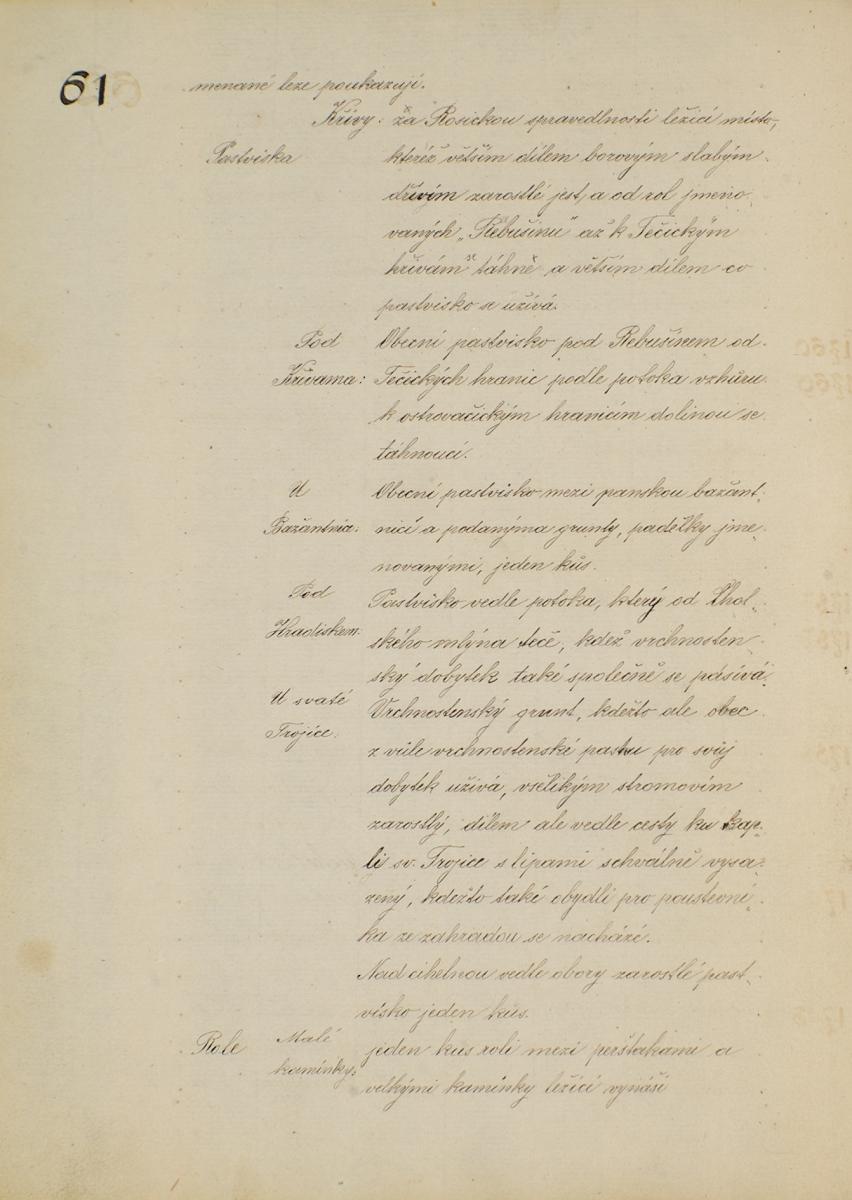 61
menané leze poukazují.
Křivy: za Rosickou spravedlnosti ležící místo,
Pastviska kteréž větším dílem borovým slabým
dřívím zarostlé jest, a od rol jmeno-
vaných „Řebušinu" až k Tečickým
hřivám se táhne a větším dílem co
pastvisko se užívá.
Pod Obecní pastvisko pod Rebušinem od
Křivama: Tečických hranic podle potoka vzhůru
k ostrovačickým hranicím dolinou se
táhnoucí.
U Obecní pastvisko mezi panskou bažant-
Bažantnice: nicí a podanýma grunty, padělky jme-
novanými, jeden kus.
Pod Pastvisko vedle potoka, který od Lhol-
Hradiskem: ského mlýna teče, kdež vrchnosten-
ský dobytek také společně se pásívá.
U svaté Vrchnostenský grunt, kdežto ale obec
Trojice: z vůle vrchnostenské pastvu pro svůj
dobytek užívá, všelikým stromovím
zarostlý, dílem ale vedle cesty ku kap-
li sv. Trojice s lipami schválně vysa-
zený, kdežto také obydlí pro poustevní-
ka ze zahradou se nachází.
Nad cihelnou vedle obory zarostlé past-
visko jeden kus.
Role Malé jeden kus roli mezi perštakami a
kamínky: velkými kamínky ležící vynáší